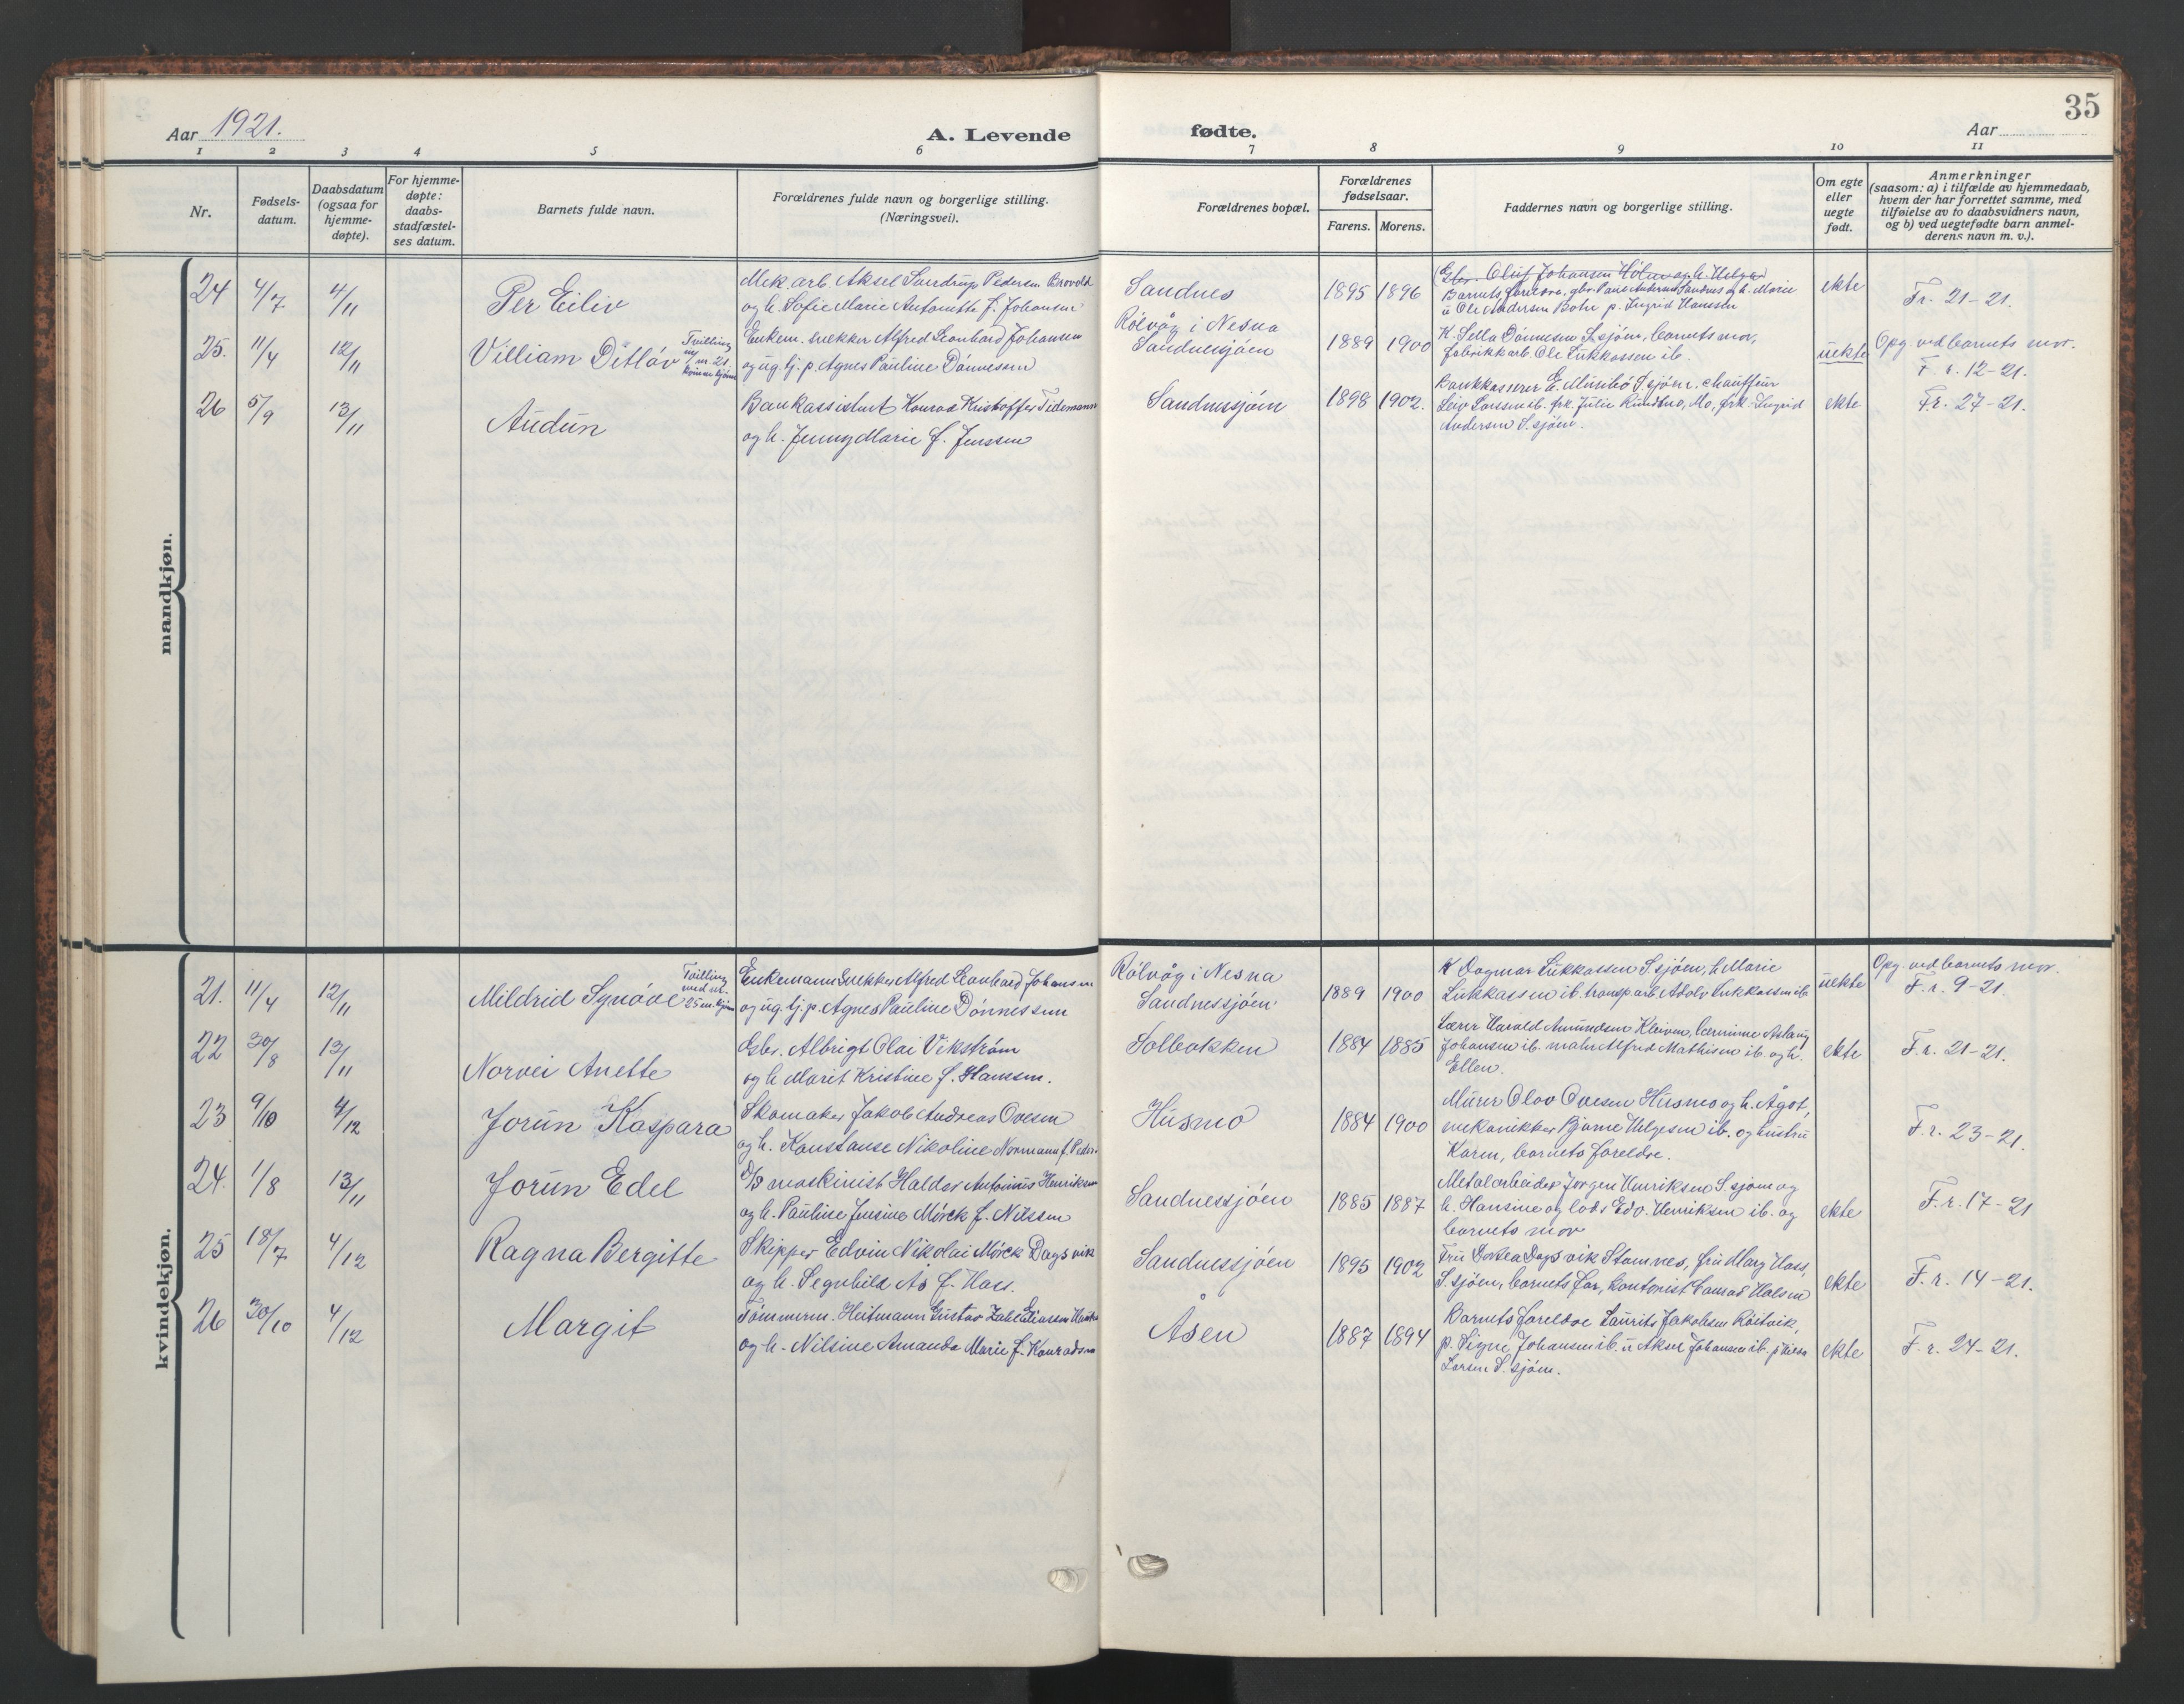 35
Aar 1921.
A. Levende
fødte.
Aar
1 2 3 4 5 6 7 8 9 10 11
Nr.
Fødsels-
datum.
Daabsdatum
(ogsaa for
hjemme-
døpte).
For hjemme-
døpte:
daabs-
stadfæstel-
ses datum.
Barnets fulde navn.
Forældrenes fulde navn og borgerlige stilling.
(Næringsvei).
Forældrenes bopæl.
Forældrenes
fødselsaar.
Farens. Morens.
Faddernes navn og borgerlige stilling.
Om egte
eller
uegte
født.
Anmerkninger
(saasom: a) i tilfælde av hjemmedaab,
hvem der har forrettet samme, med
tilføielse av to daabsvidners navn,
og b) ved uegtefødte barn anmel-
derens navn m. v.).
mandkjøn.
24 4/7 4/11 Per Eiliv
Mek. arb. Aksel Pedersen
og h. Sofie Marie Antonette f. Johansen
Sandnes 1895 1896
Oluf Johansen og h.
Barnets foreldre, gbr. Andersen Sandnes og h. Marie
u Ole Andersen p. Ingrid Hanssen
ekte Fr. 21-21.
25. 11/4 12/11 Villiam Ditløv
Tvilling
m/nr. 21.
kvinnekjøn
Enkem. snekker Alfred Leonhard Johansen
og ug. tj. p. Agnes Pauline Dønnessen
Rølvåg i Nesna
Sandnessjøen
1889 1900
K. Sella Dønnesen S.sjøen, barnets mor,
fabrikkarb. Ole Lukkassen ib.
uekte Opg. ved barnets mor.
F. r. 12-21.
26 5/9 13/11 Audun
Bankassistent Konrad Kristoffer Tidemann
og h. Jenny Marie f. Jenssen
Sandnessjøen 1898 1902.
Bankkasserer E. S.sjøen, chauffeur
Leiv Larssen ib. frk. Julie Mo, frk. Ingrid
Andersen S.sjøen.
ekte Fr. 27-21.
kvindekjøn.
21. 11/4 12/11 Mildrid Synøve
Tvilling
med nr.
25 m.kjøn
Enkemann Snekker Alfred Leonhard Johansen
og ug. tj. p. Agnes Pauline Dønnessen
Rølvåg i Nesna
Sandnessjøen
1889 1900
K Dagmar Lukkassen S.sjøen, h. Marie
Lukkassen ib. transp.arb. Adolv Lukkassen ib
uekte Opg. ved barnets mor.
F. r. 9-21.
22 30/8 13/11 Norvei Anette
Gbr. Albrigt Olai Vikstrøm
og h Marit Kristine f. Hanssen.
Solbakken 1884 1885
Lærer Harald Amundsen Kleiven, lærerinne Aslaug
Johansen ib. maler Alfred Mathisen ib. og h.
Ellen.
ekte F. r. 21-21.
23 9/10 4/12 Jorun Kaspara
Skomaker Jakob Andreas Ovesen
og h. Konstanse Nikoline Normann f. Peder
Husmo 1884 1900
Murer Olav Ovesen Husmo og h. Ågot,
mekanikker Bjarne Helgesen ib. og hustru
Karen, barnets foreldre.
F. r. 23-21.
24. 1/8 13/11 Jorun Edel
D/S maskinist Haldor Antonius Henriksen
og h. Pauline Jensine Mørck f. Nilssen
Sandnessjøen 1885 1887
Metalarbeider Jørgen Henriksen S.sjøen og
h. Hansine og lods Edv. Henriksen ib. og
barnets mor
ekte F. r. 17-21
25 18/7 4/12 Ragna Bergitte
Skipper Edvin Nikolai Mørck Dagsvik
og h. Segnhild Ås f. Hass.
Sandnessjøen 1895 1902
Fru Dortea Dagsvik Stamnes, fru Mary Hass,
S.sjøen, barnets far, kontorist Halsen
ekte F. r. 14-21.
26 30/10 4/12 Margit
Tømmerm. Heitmann Gustav Zahl Eliassen
og h. Nilsine Amanda Marie f. Konradsen
Åsen 1887 1894
Barnets foreldre Laurits Jakobsen
p. Signe Johansen ib. u Aksel Johansen ib. p
Larsen S.sjøen.
ekte F. r. 24-21.